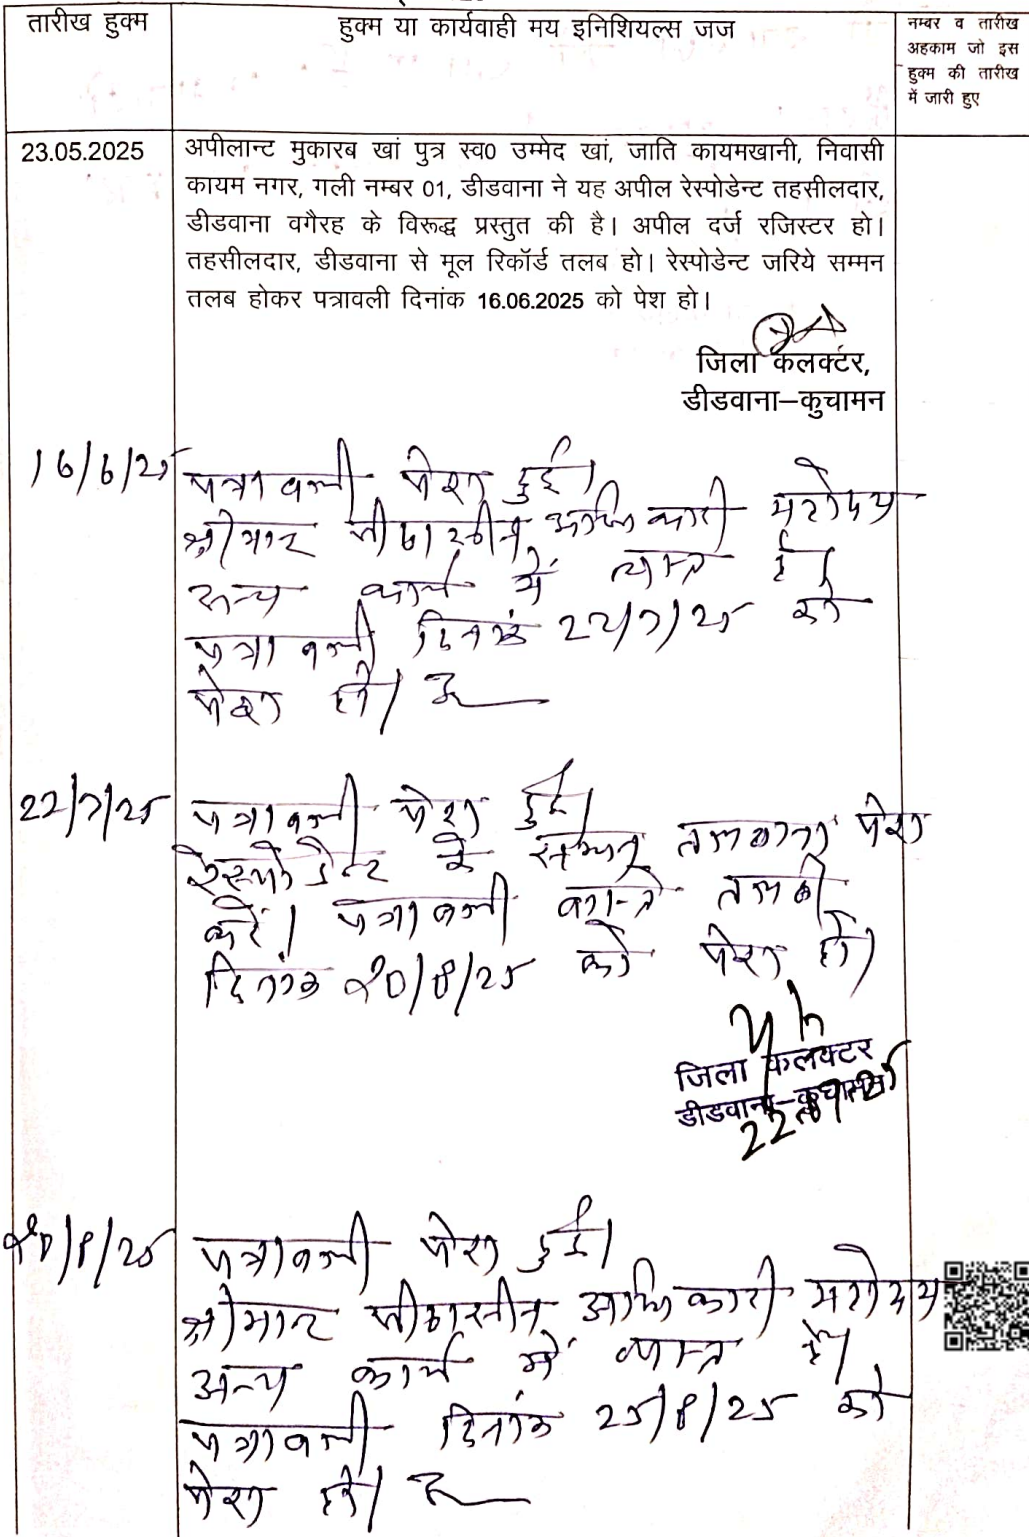 तारीख हुक्म
हुक्म या कार्यवाही मय इनिशियल्स जज
नम्बर व तारीख
अहकाम जो इस
हुक्म की तारीख
में जारी हुए
23.05.2025
अपीलान्ट मुकारब खां पुत्र स्व0 उम्मेद खां, जाति कायमखानी, निवासी
कायम नगर, गली नम्बर 01, डीडवाना ने यह अपील रेस्पोडेन्ट तहसीलदार,
डीडवाना वगैरह के विरूद्ध प्रस्तुत की है। अपील दर्ज रजिस्टर हो।
तहसीलदार, डीडवाना से मूल रिकॉर्ड तलब हो। रेस्पोडेन्ट जरिये सम्मन
तलब होकर पत्रावली दिनांक 16.06.2025 को पेश हो।
जिला कलक्टर,
डीडवाना–कुचामन
16/6/25
पत्रावली पेश हुई।
श्रीमान पीठासीन अधिकारी महोदय
अन्य कार्य में व्यस्त है।
पत्रावली दिनांक 22/7/25 को
पेश हो।
22/7/25
पत्रावली पेश हुई।
रेस्पोडेन्ट के सम्मन तलवाना पेश
करें। पत्रावली वास्ते तलबी
दिनांक 20/8/25 को पेश हो।
जिला कलक्टर
डीडवाना–कुचामन
22/07/25
20/8/25
पत्रावली पेश हुई।
श्रीमान पीठासीन अधिकारी महोदय
अन्य कार्य में व्यस्त है।
पत्रावली दिनांक 25/8/25 को
पेश हो।